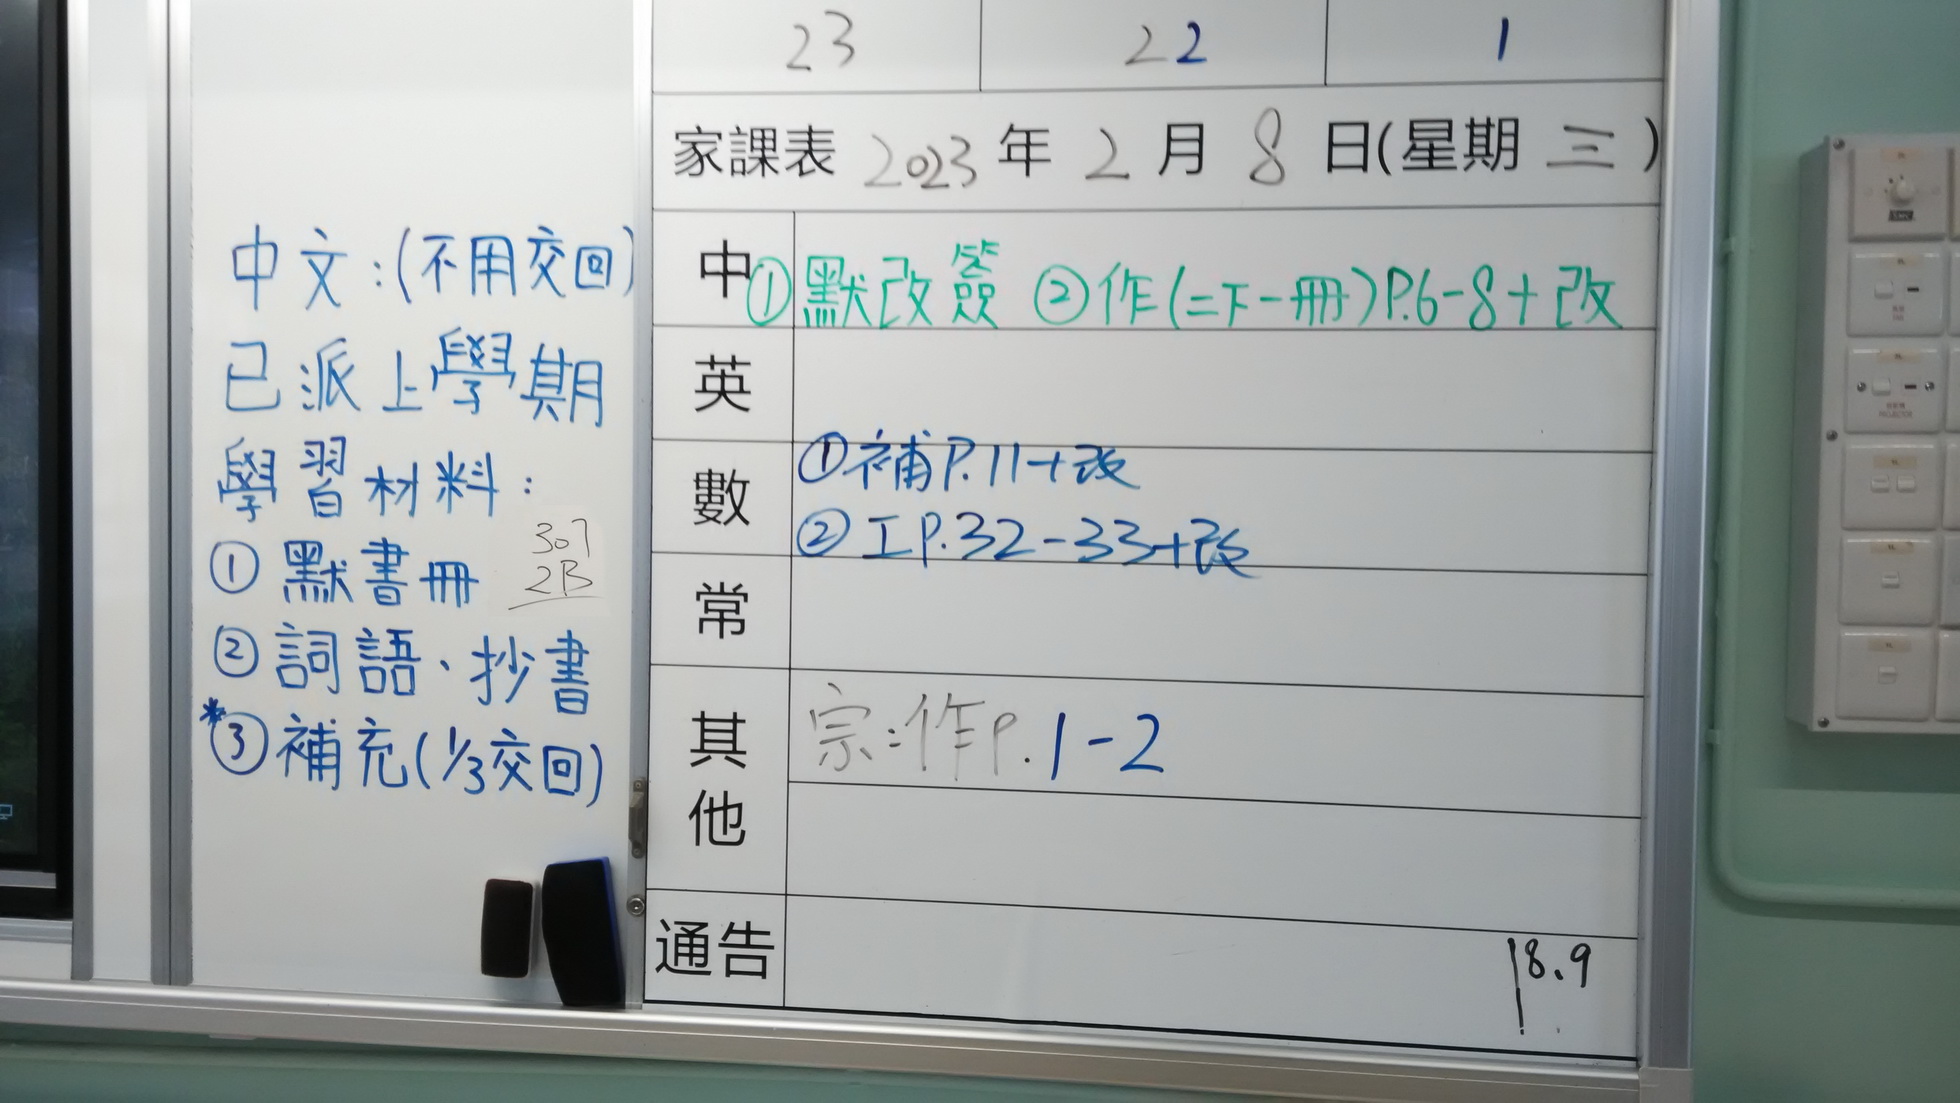 中文：(不用交回)
已派上學期
學習材料：
① 默書冊
307
2B
② 詞語、抄書
*③ 補充(1/3交回)
23 22 1
家課表 2023 年 2 月 8 日(星期 三)
中 ①默改簽 ②作(二下一冊)P.6-8+改
英
數 ①補P.11+改
②工P.32-33+改
常
其他 宗：作P.1-2
通告
18.9